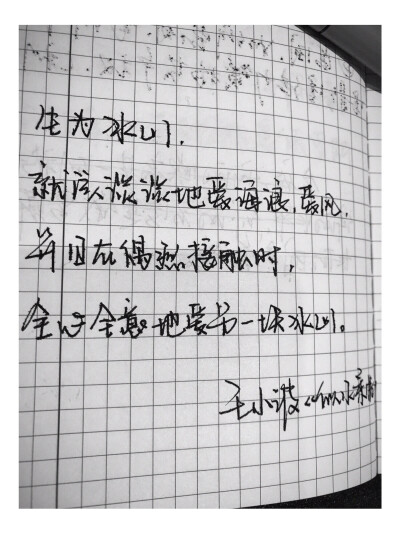 生为冰山,
就该淡淡地爱海浪,爱风,
并且在偶然接触时,
全心全意地爱另一块冰山。
王小波《似水柔情